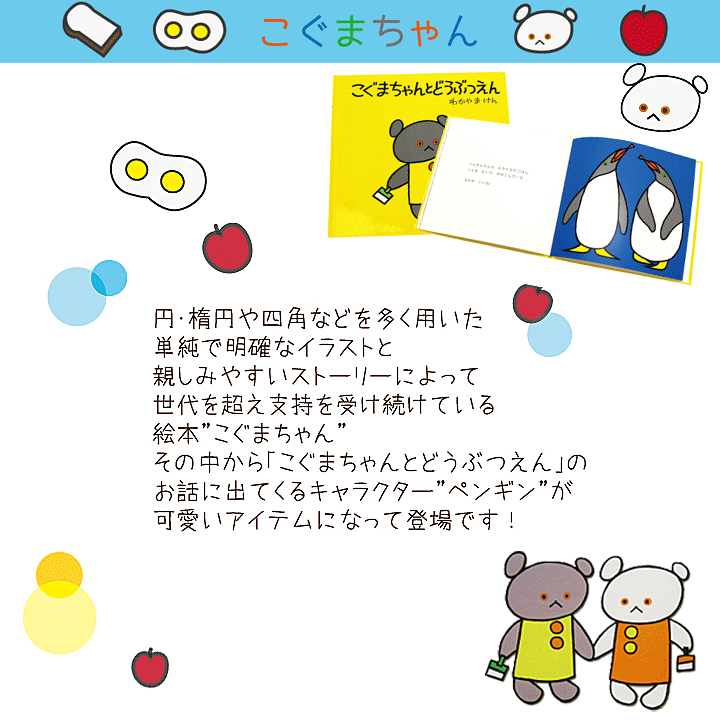 こぐまちゃん
こぐまちゃんとどうぶつえん
わかやま けん
円・楕円や四角などを多く用いた
単純で明確なイラストと
親しみやすいストーリーによって
世代を超え支持を受け続けている
絵本”こぐまちゃん”
その中から「こぐまちゃんとどうぶつえん」の
お話に出てくるキャラクター”ペンギン”が
可愛いアイテムになって登場です！